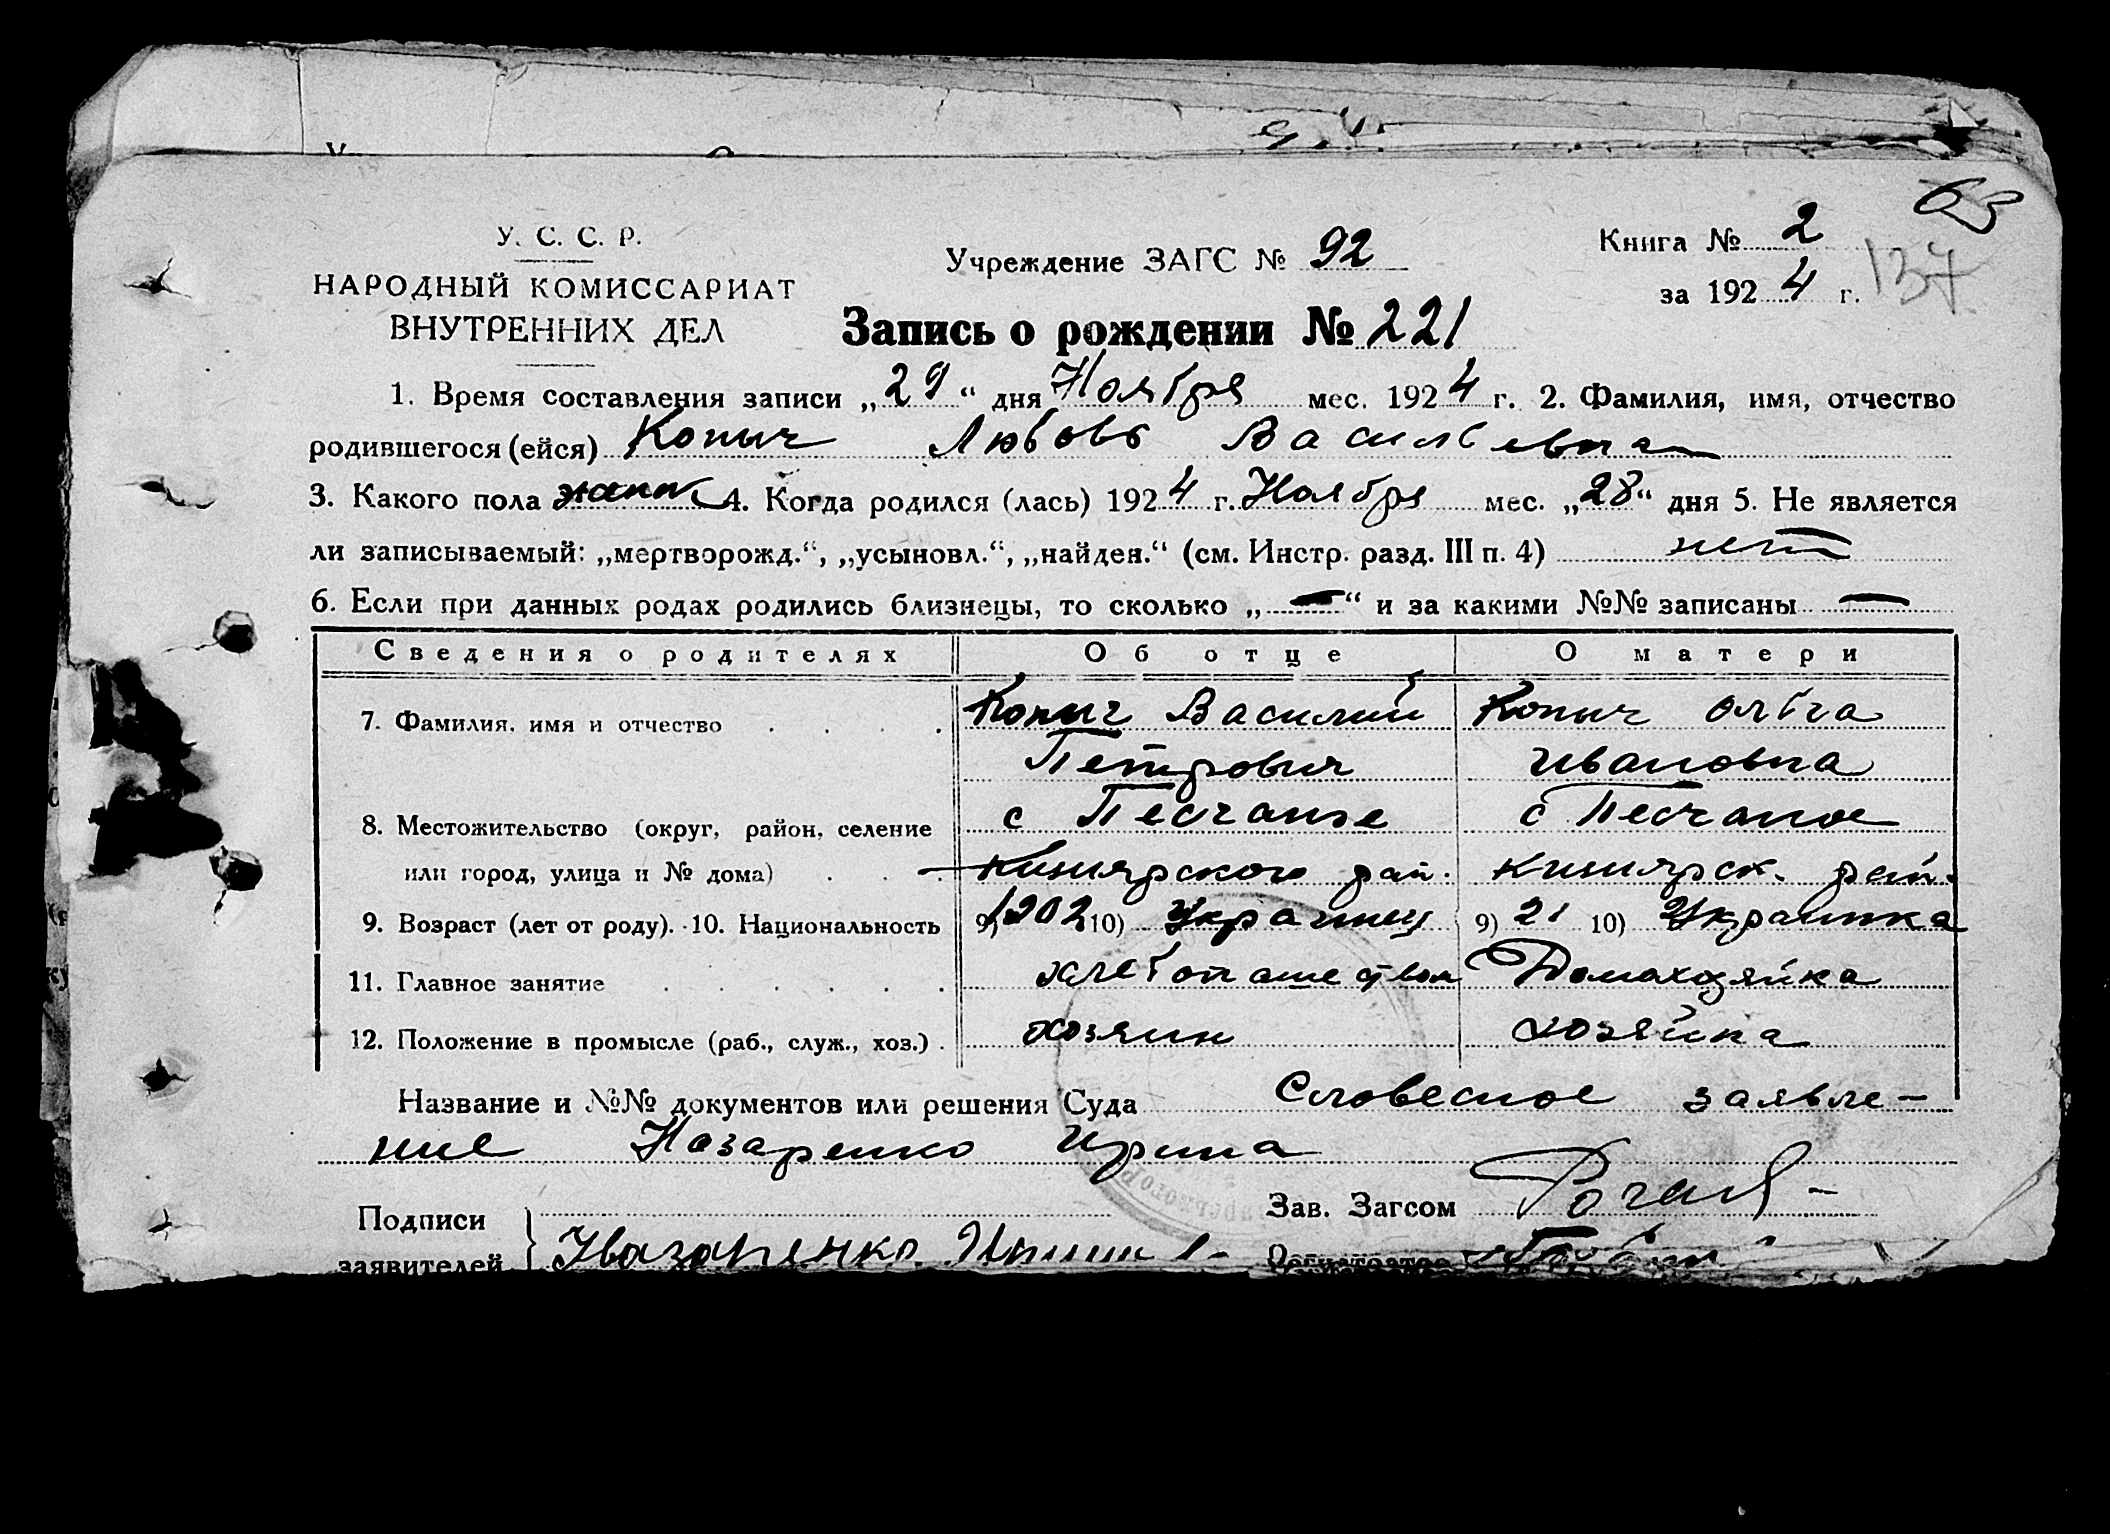 63
У. С. С. Р.
НАРОДНЫЙ КОМИССАРИАТ
ВНУТРЕННИХ ДЕЛ
Учреждение ЗАГС № 92
Книга № 2
за 1924 г. 137
Запись о рождении № 221
1. Время составления записи „29“ дня Ноября мес. 1924 г. 2. Фамилия, имя, отчество
родившегося (ейся) Копыч Любовь Васильевна
3. Какого пола 4. Когда родился (лась) 1924 г. Ноября мес. „28“ дня 5. Не является
ли записываемый: „мертворожд.“, „усыновл.“, „найден.“ (см. Инстр. разд. III п. 4) нет
6. Если при данных родах родились близнецы, то сколько „—“ и за какими №№ записаны —
Сведения о родителях Об отце О матери
7. Фамилия, имя и отчество Копыч Василий Копыч Ольга
Петрович Ивановна
8. Местожительство (округ, район, селение с Песчанье с Песчаное
или город, улица и № дома) рай. рай.
9. Возраст (лет от роду). 10. Национальность 9) 1902 10) Украинец 9) 21 10) Украинка
11. Главное занятие Домохозяйка
12. Положение в промысле (раб., служ., хоз.) хозяин хозяйка
Название и №№ документов или решения Суда Словесное заявле-
ние Назаренко Ирина
Зав. Загсом
Подписи
заявителей Назаренко Регистратор